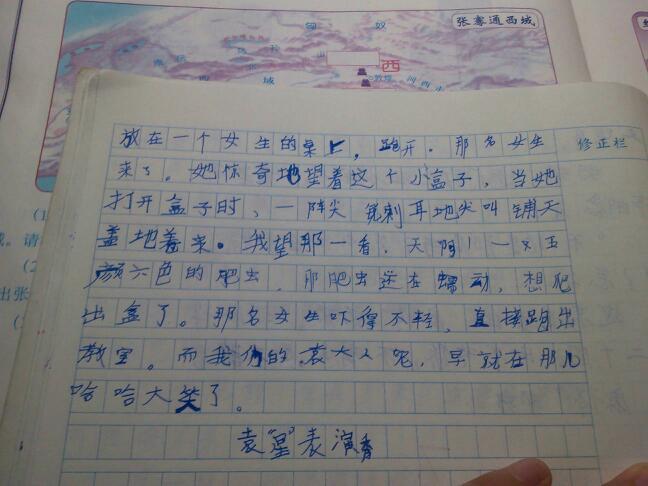 匈 奴
张骞通西域
西
域
放在一个女生的桌上，跑开。那名女生
修正栏
来了。她惊奇地望着这个小盒子，当她
打开盒子时，一阵尖锐刺耳地尖叫铺天
盖地着来。我望那一看，天阿！一又五
颜六色的肥虫，那肥虫还在蠕动，想爬
出盒了。那名女生吓得不轻，直接跑出
教室。而我们的袁大人呢，早就在那儿
哈哈大笑了。
袁“星”表演秀